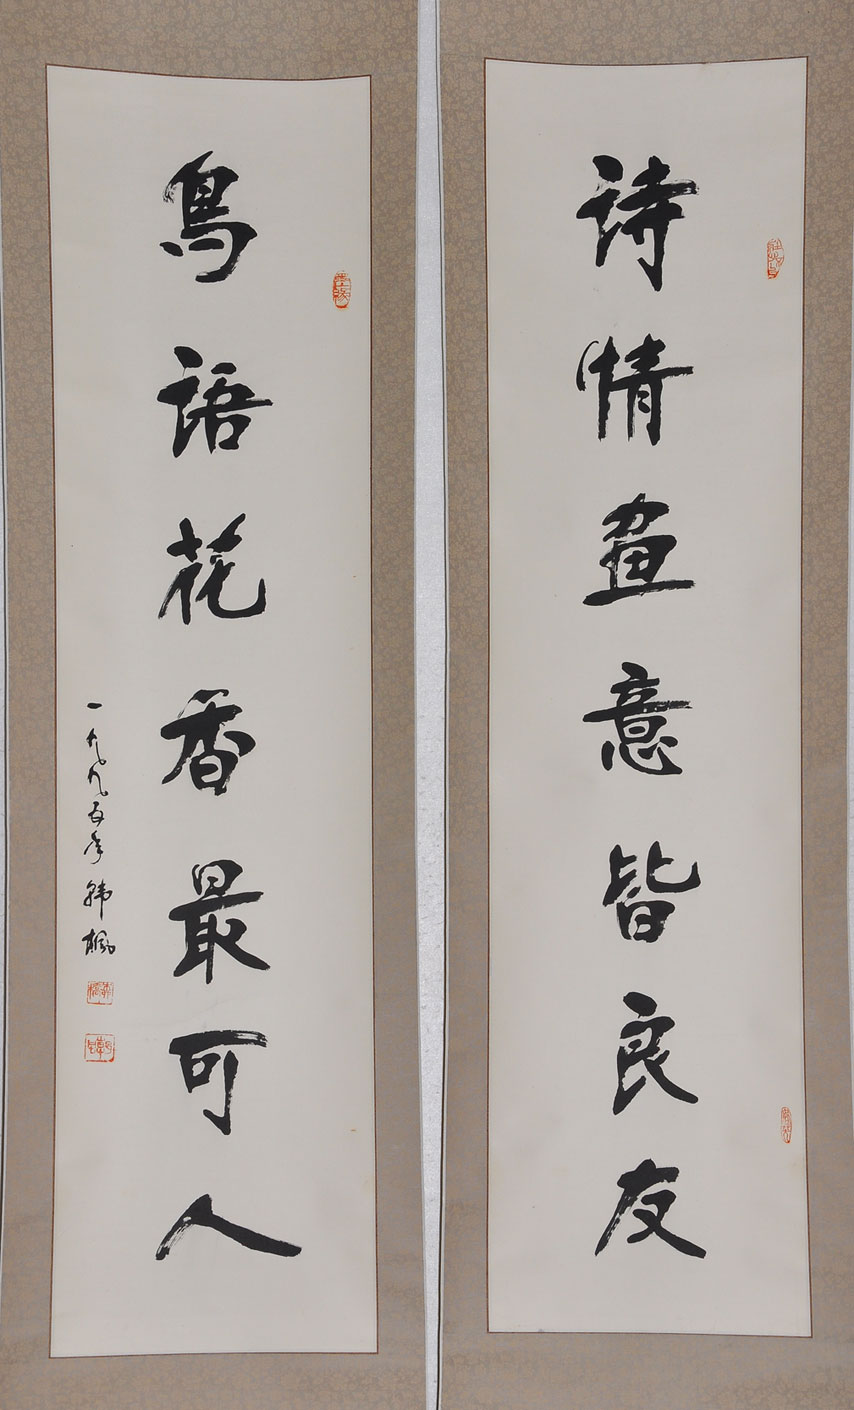 诗情画意皆良友
鳥语花香最可人
一九九五年韩楓